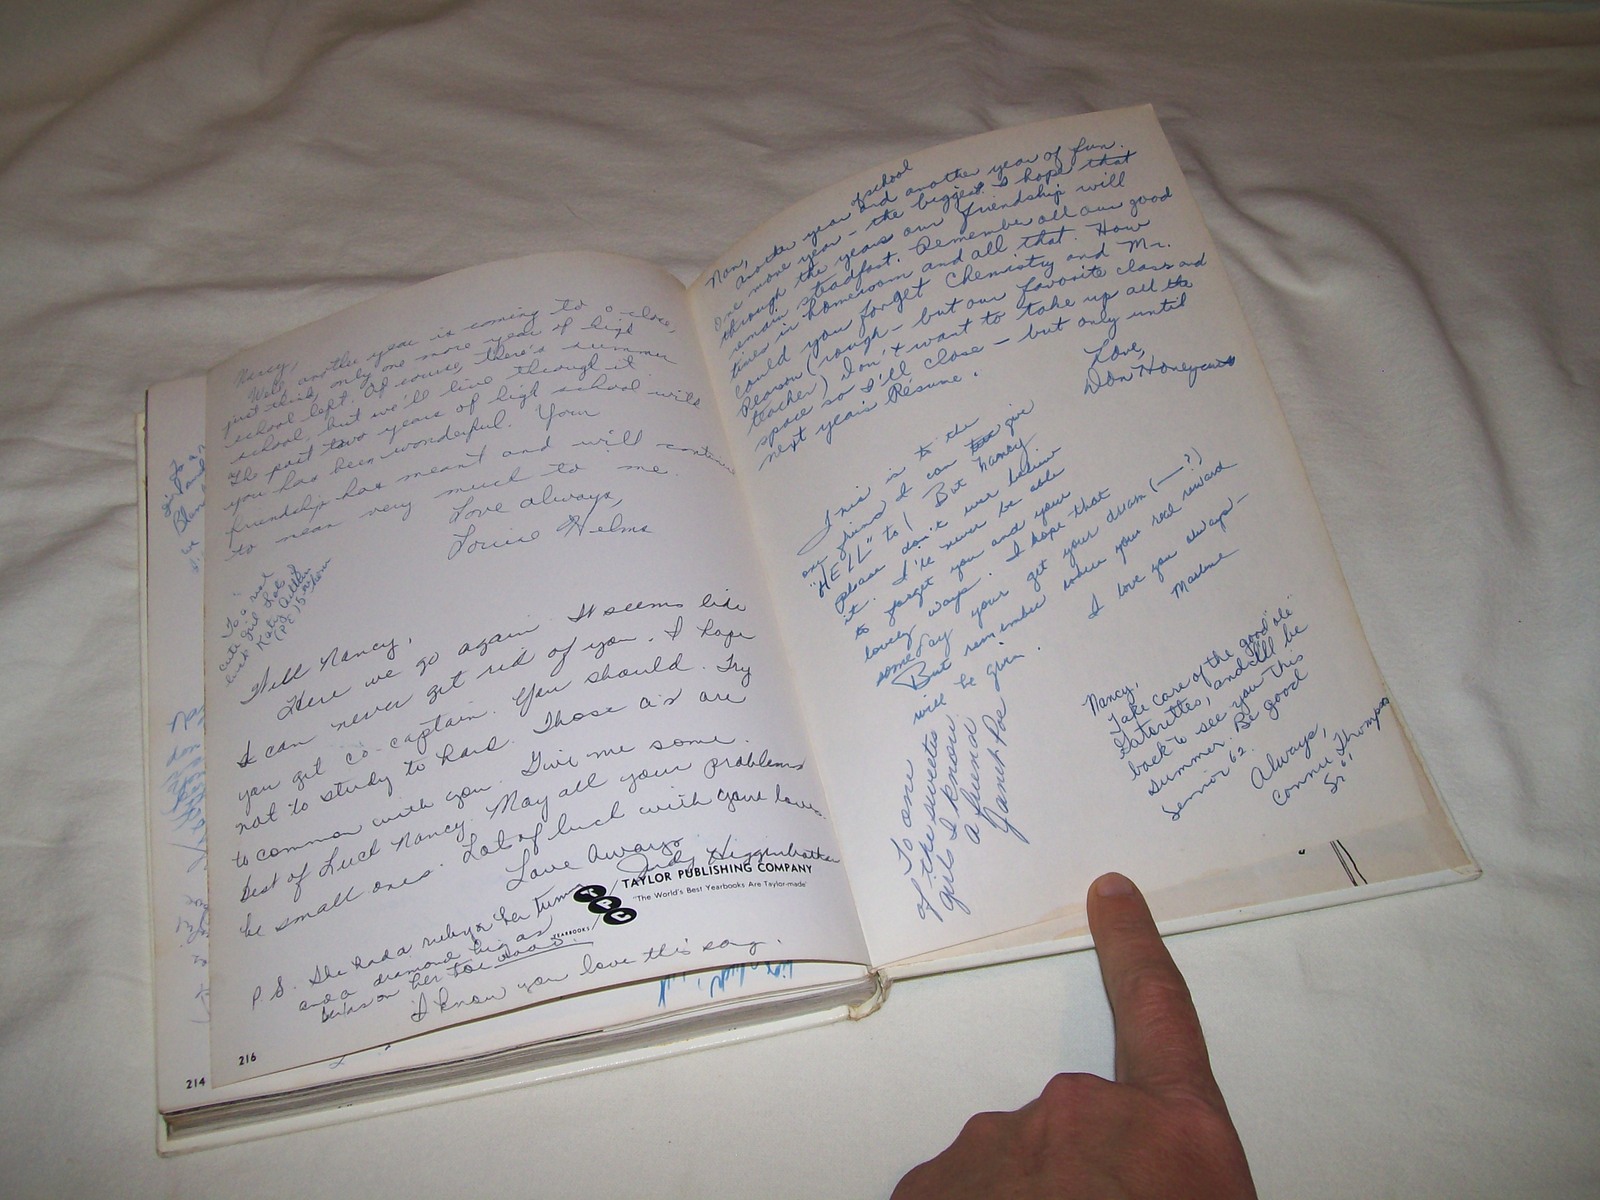 Nancy,
Well, another year is coming to a close,
just think, only one more year of high
school left. Of course, there's summer
school, but we'll live through it.
The past two years of high school with
you has been wonderful. Your
friendship has meant and will continue
to mean very much to me.
Love always,
Louise Helms
To a real
cute girl Lots of
luck
Well Nancy,
Here we go again. It seems like
I can never get rid of you. I hope
you get co-captain. You should. Try
not to study to hard. Those a's are
to common with you. Give me some.
Best of Luck Nancy. May all your problems
be small ones. Lot of luck with your love.
Love Always
Judy Higginbotham
TAYLOR PUBLISHING COMPANY
"The World's Best Yearbooks Are Taylor-made"
TPC
YEARBOOKS
P.S. She had a ruby on her tummy
and a diamond big as
on her toe
I know you love this song.
216
214
Nan,
Another year of school and another year of fun.
One more year - the biggest. I hope that
through the years our friendship will
remain steadfast. Remember all our good
times in homeroom and all that. How
could you forget Chemistry and Mr.
Pearson (rough - but our favorite class and
teacher) Don't want to take up all the
space so I'll close - but only until
next year's Résume.
Love,
Don Honeycutt
This is to the
one friend I can give
"HELL" to! But Nancy
please don't ever believe
it. I'll never be able
to forget you and your
lovely ways. I hope that
someday your get your dream (—?)
But remember where your real reward
will be given.
I love you always -
Marlene
To one
of the sweetes
girls I know.
a friend
Janet Poe
Nancy,
Take care of the good "ole"
Gatorettes, and I'll be
back to see you this
summer. Be good
Senior 62.
Always,
Connie Thompson
Sr.